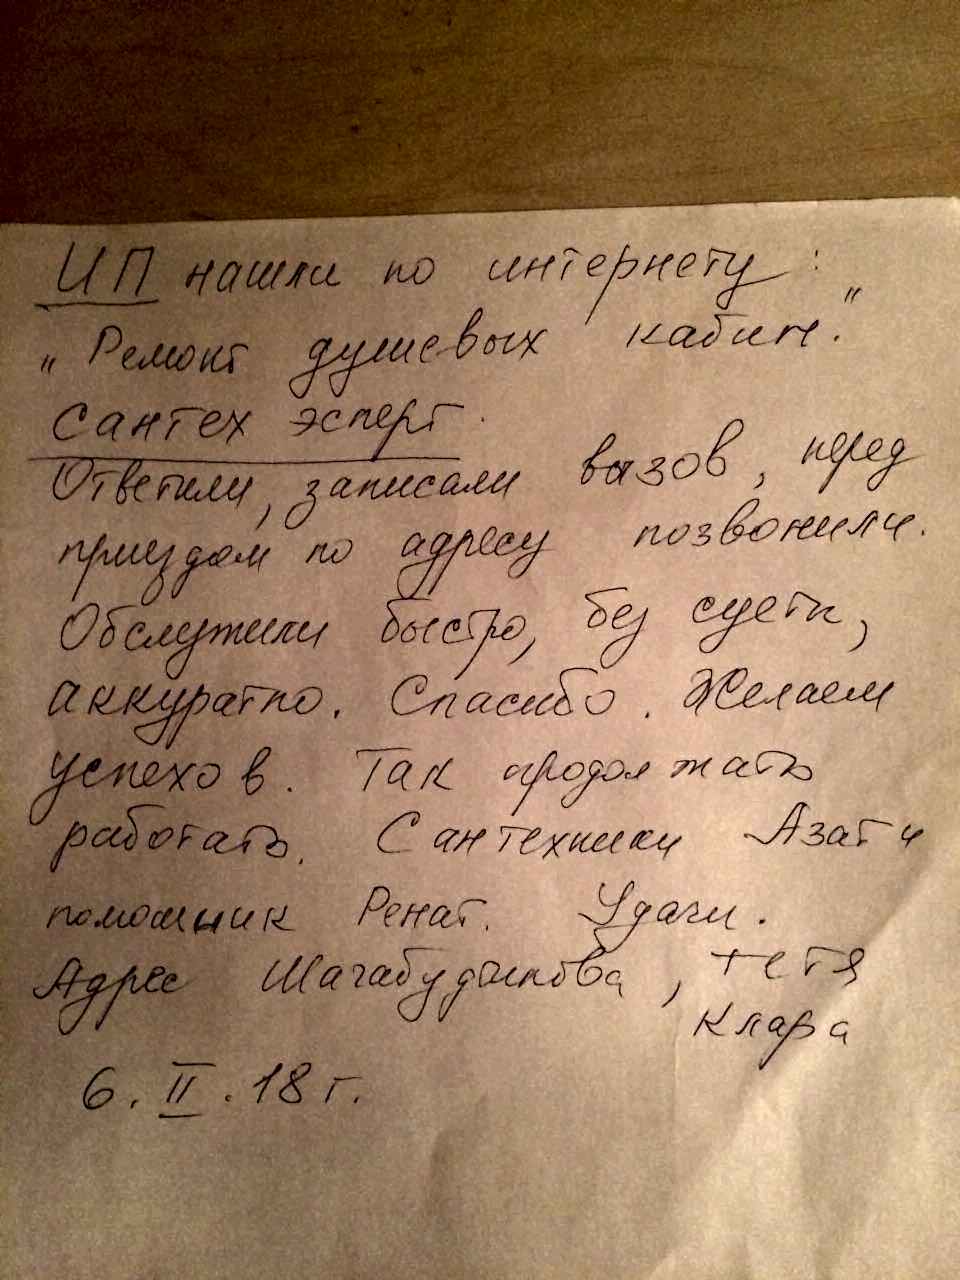 ИП нашли по интернету:
"Ремонт душевых кабин."
Сантех эсперт.
Ответили, записали вызов, перед
приездом по адресу позвонили.
Обслужили быстро, без суеты,
аккуратно. Спасибо. Желаем
успехов. Так продолжать
работать. Сантехники Азат и
помощник Ренат. Удачи.
Адрес , тетя
Клара
6.II.18 г.